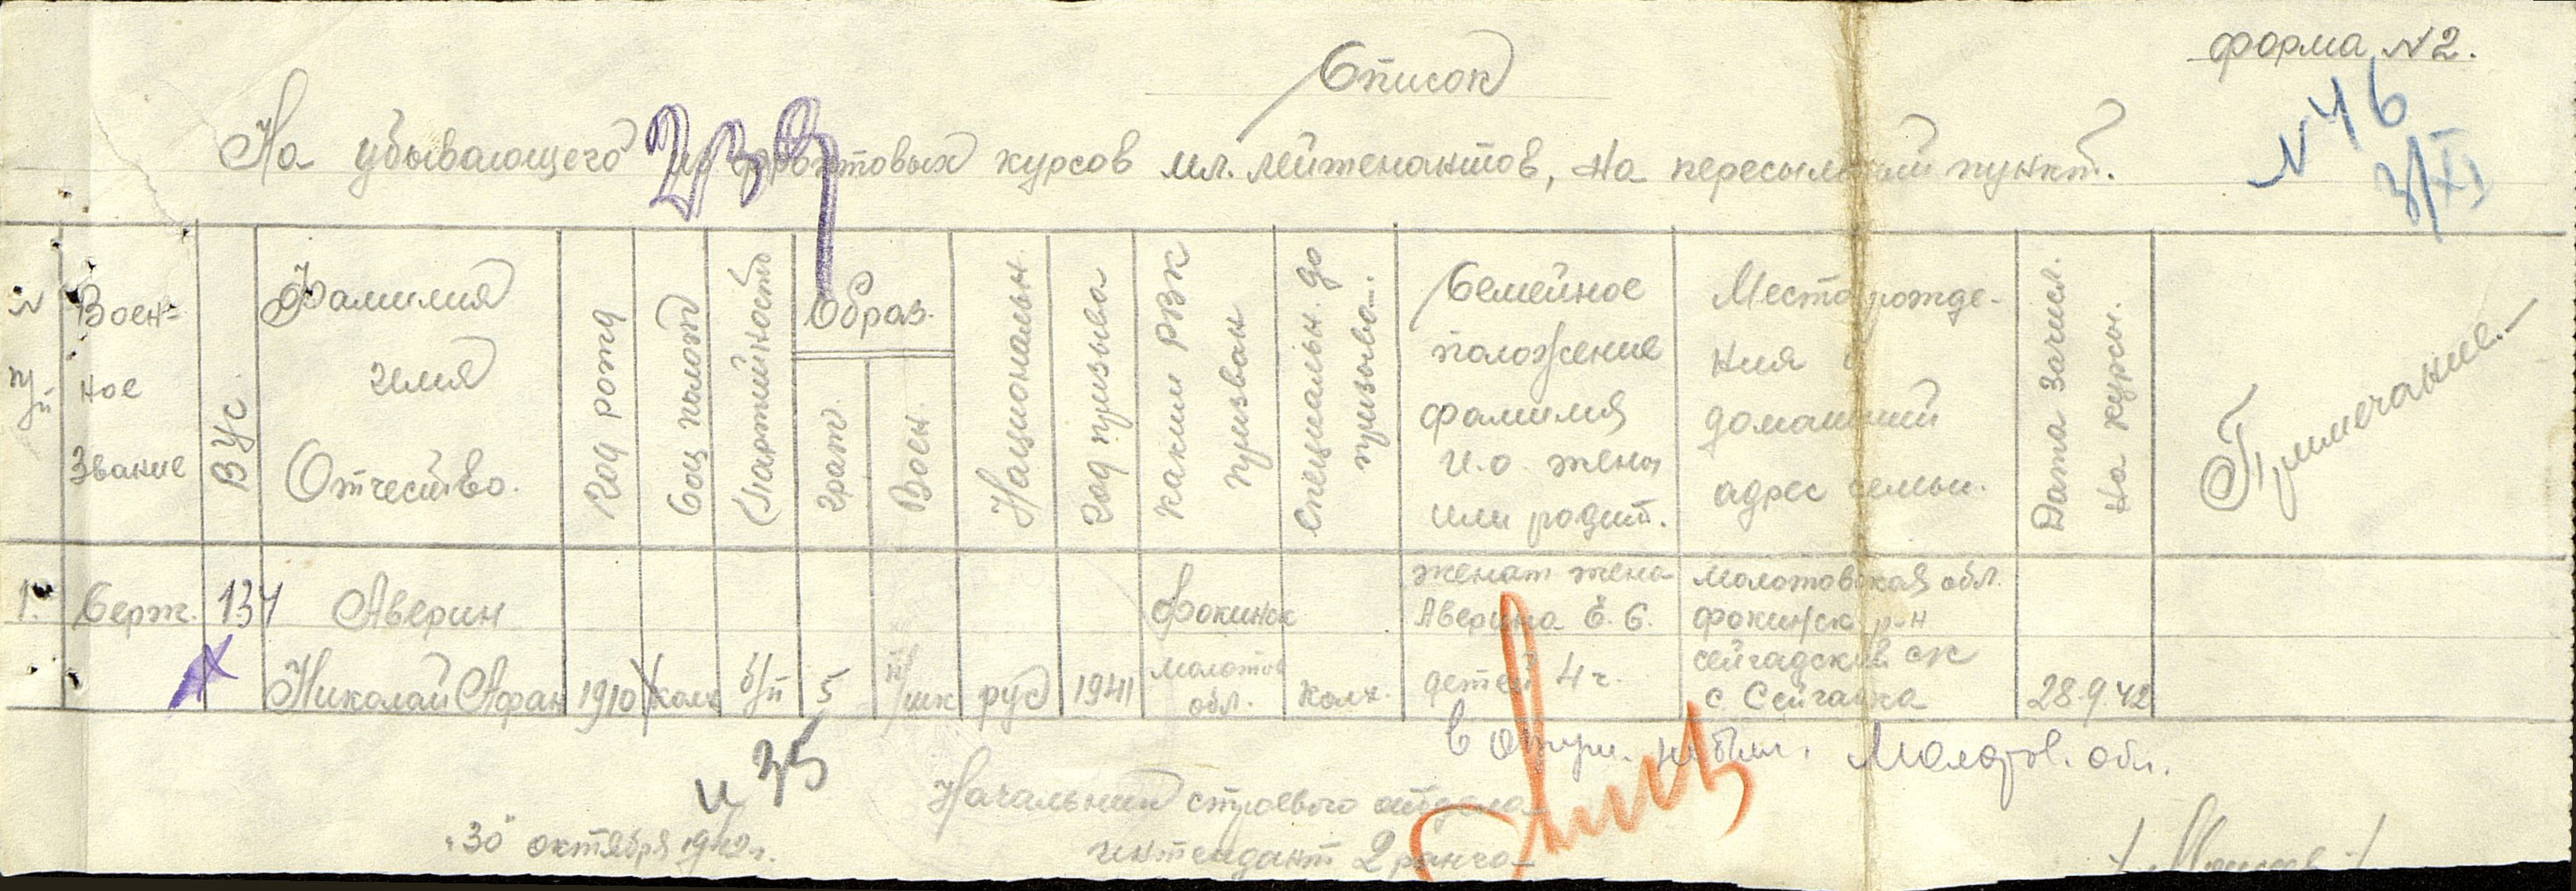 форма N2.
Список
N 46
3/XI
На убывающего из фронтовых курсов мл. лейтенантов, на пересыльный пункт.
N п/п
Воен-
ное
Звание
ВУс
Фамилия
имя
Отчество.
Год рожд
Соц полож
Партийность
Образ.
грат.
Воен.
Национальн.
Год призыва
Каким РВК
призван
Специальн. до
призыва.
Семейное
положение
фамилия
и.о. жены
или родит.
Место рожде-
ния и
домашний
адрес семьи.
Дата зачисл.
на курсы.
Примечание.
1. Серж. 134
Аверин
Николай Афан
1910
колх
б/п
5
рус
1941
Фокинск
Молотов
обл.
колх.
женат жена
Аверина Е. С.
детей 4 ч.
Молотовская обл.
Фокинск р-н
с Сейгатка
28.9.42
Молотов. обл.
и 35
Начальник строевого отдела
интендант 2 ранга
"30" октября 1942г.